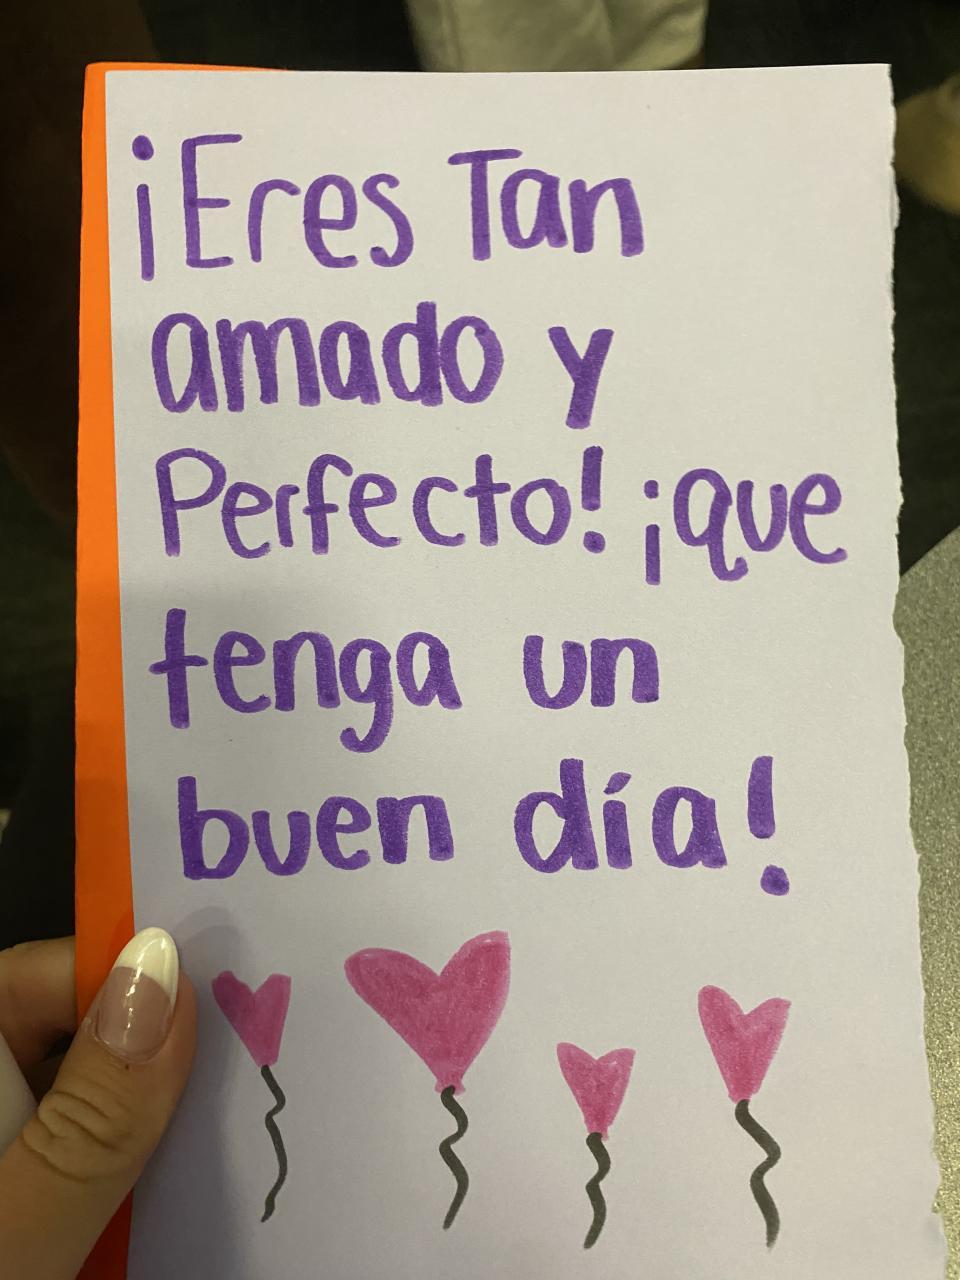 ¡Eres Tan
amado y
Perfecto! ¡que
tenga un
buen día!